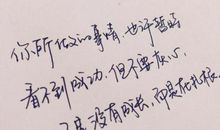 你所做的事情,也许暂时
看不到成功,但不要灰心,
不是没有成长,而是在扎根